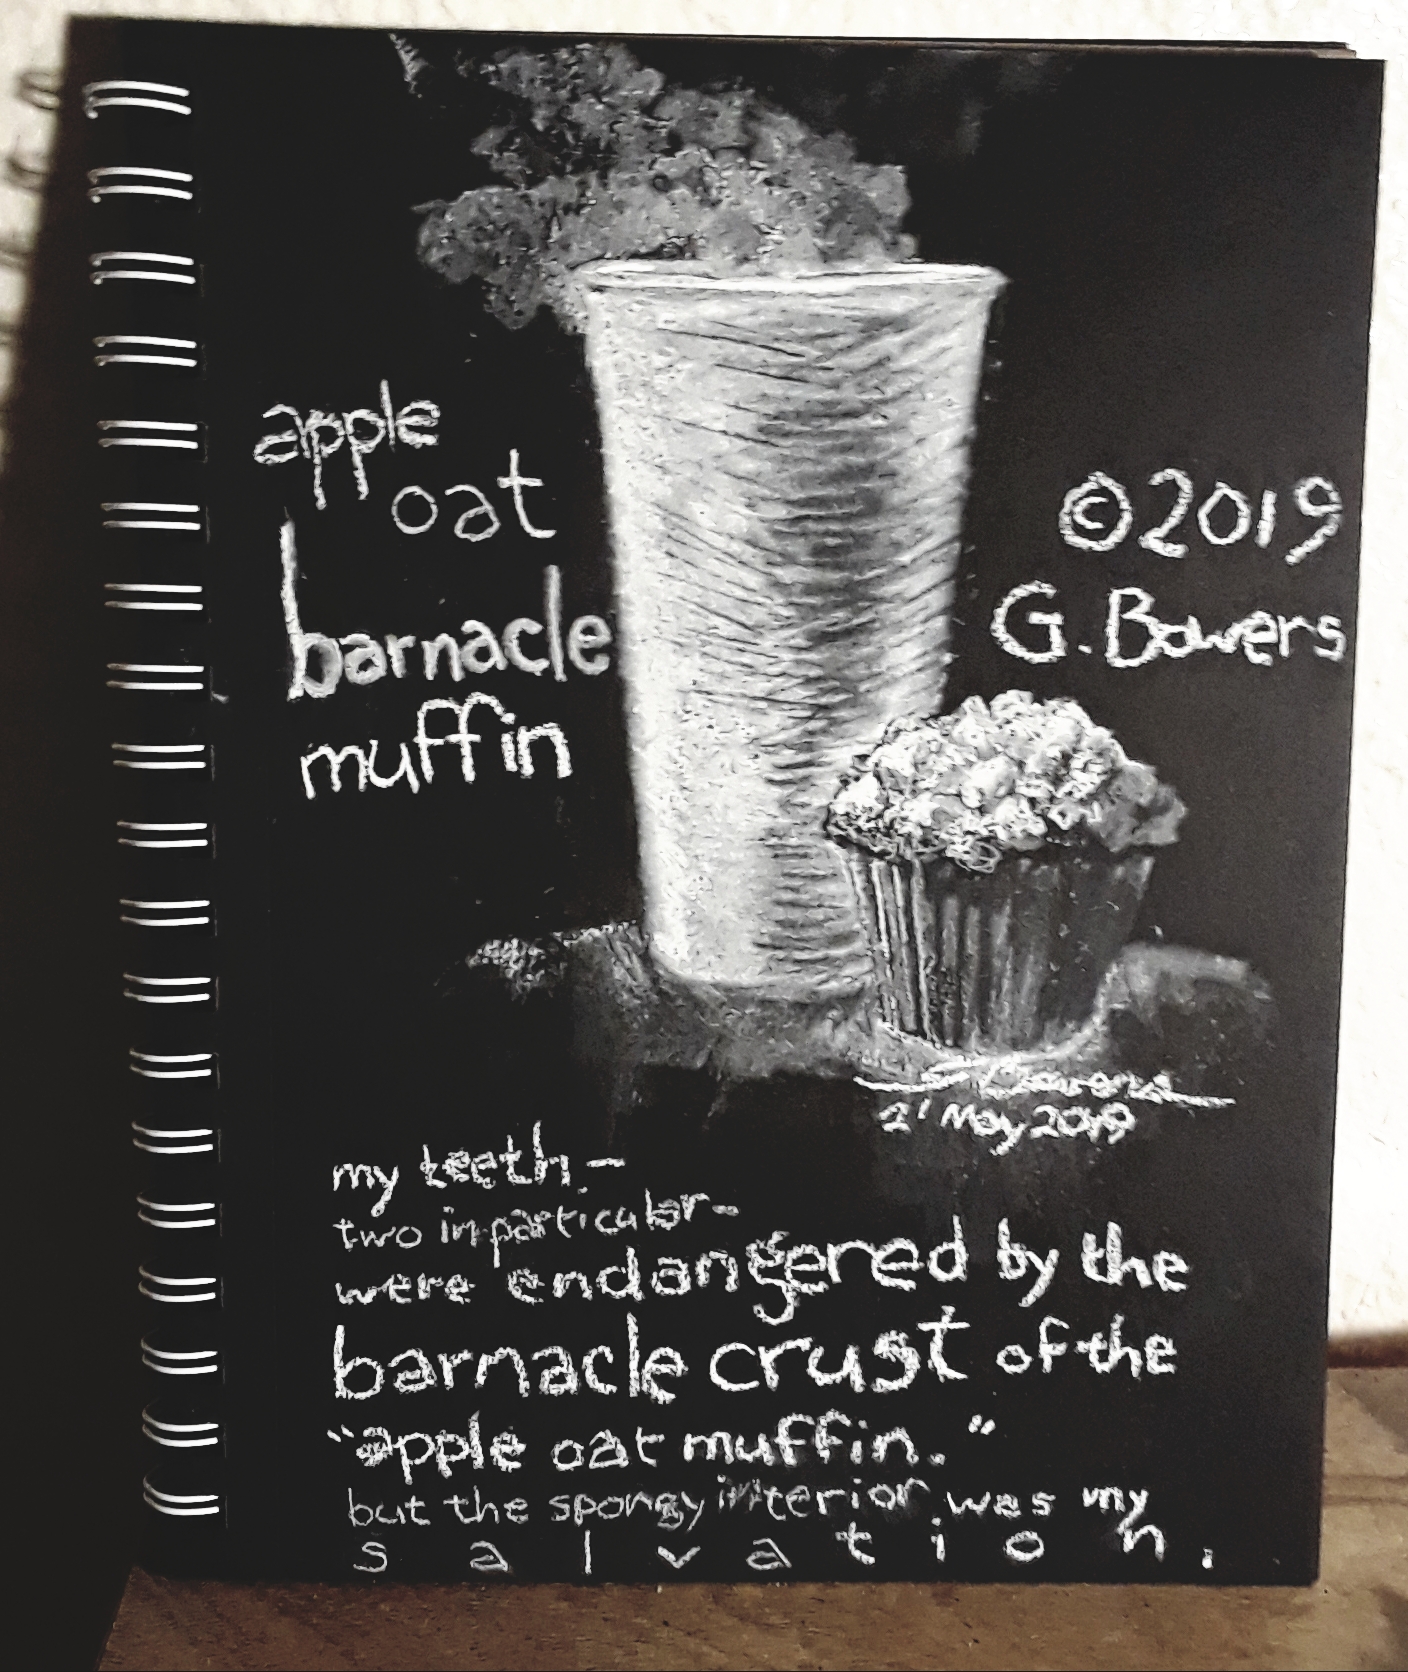 apple
oat
barnacle
muffin
©2019
G. Bowers
G Bowers
21 May 2019
my teeth –
two in particular –
were endangered by the
barnacle crust of the
“apple oat muffin.”
but the spongy interior was my
salvation.